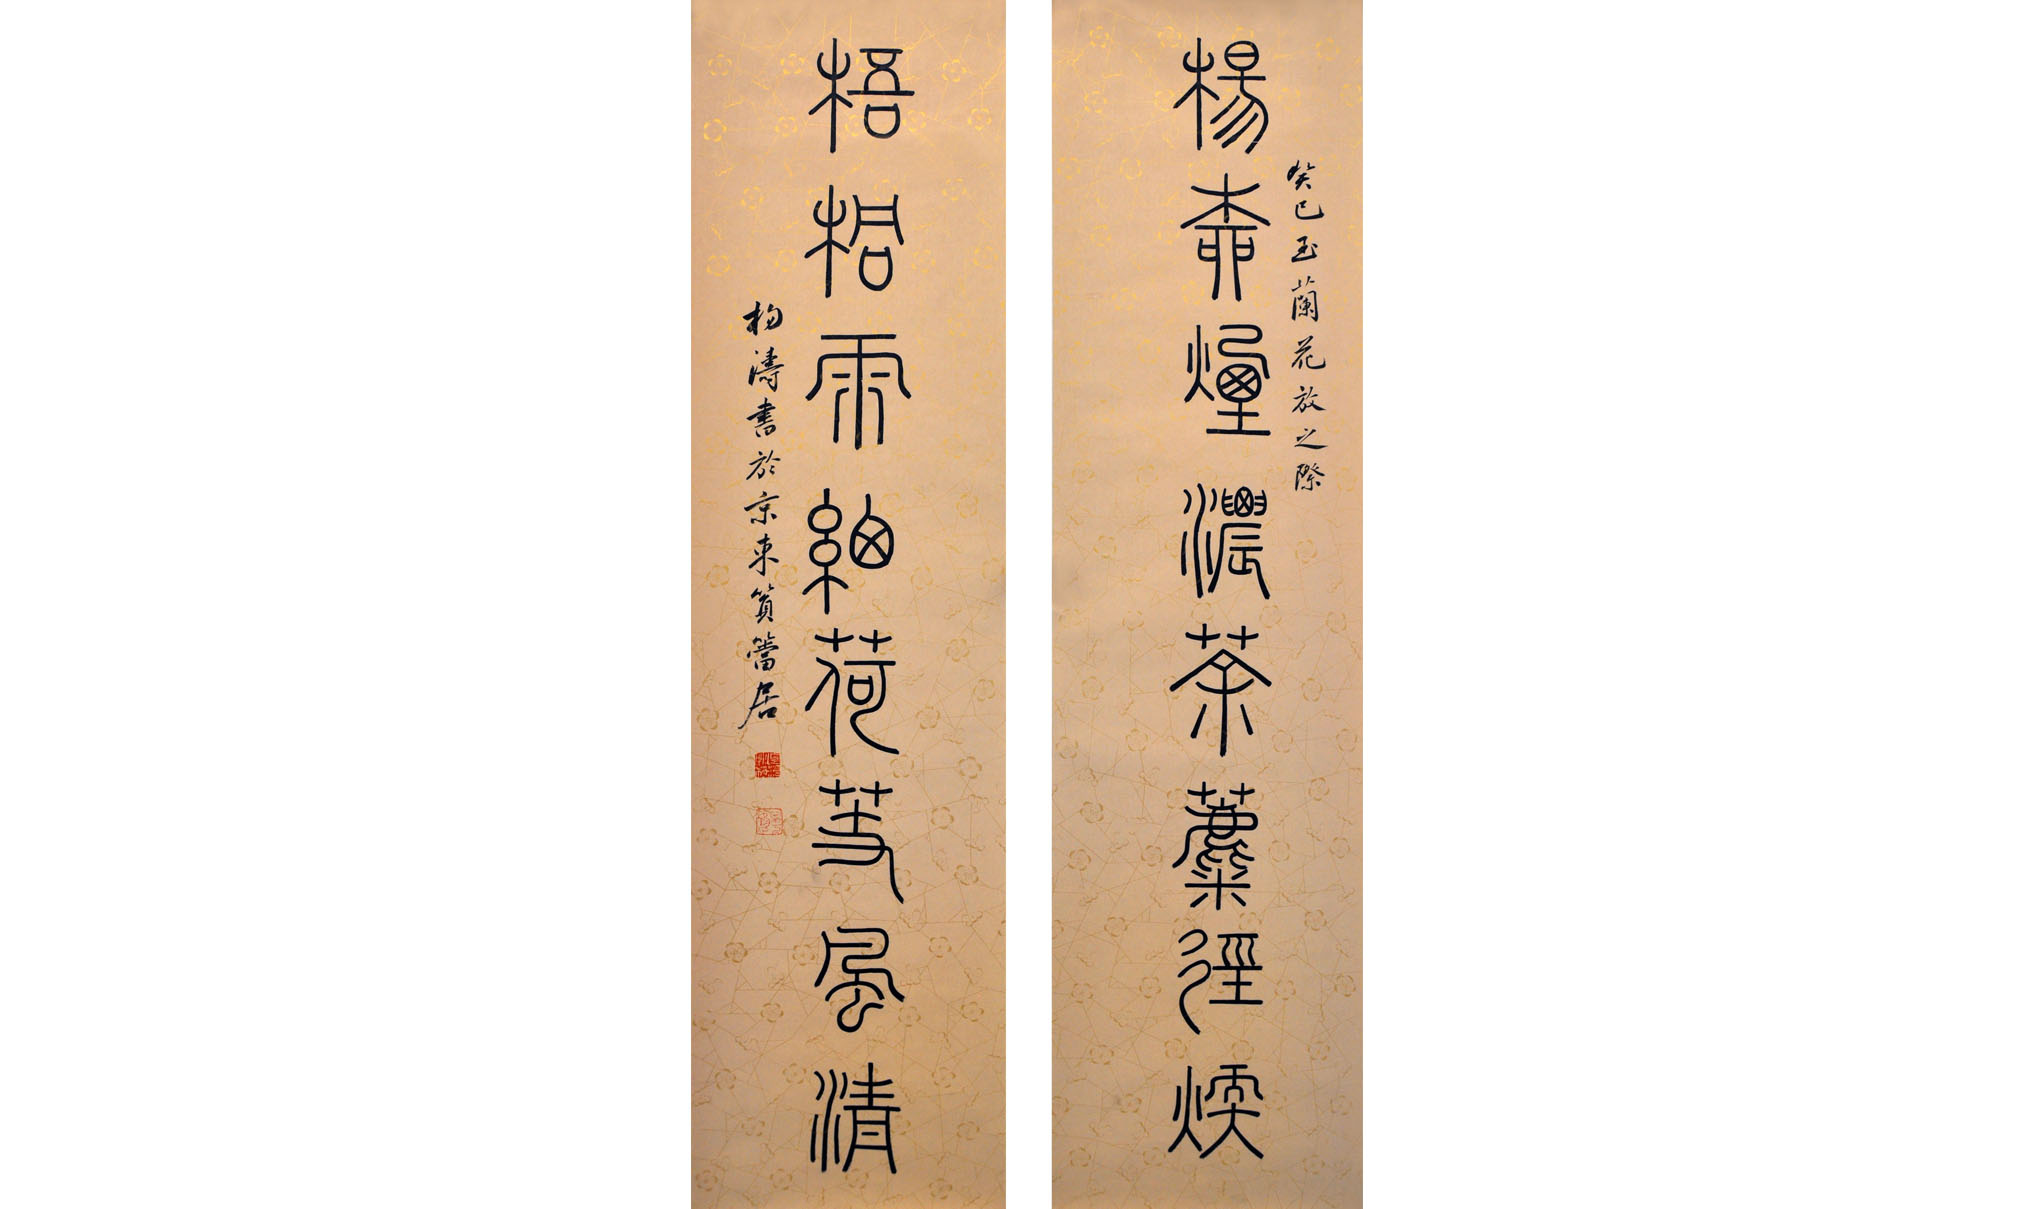 楊柳煙濃荼蘪徑煖
癸巳玉蘭花放之際
梧桐雨細荷芰風清
楊濤書於京東篔簹居